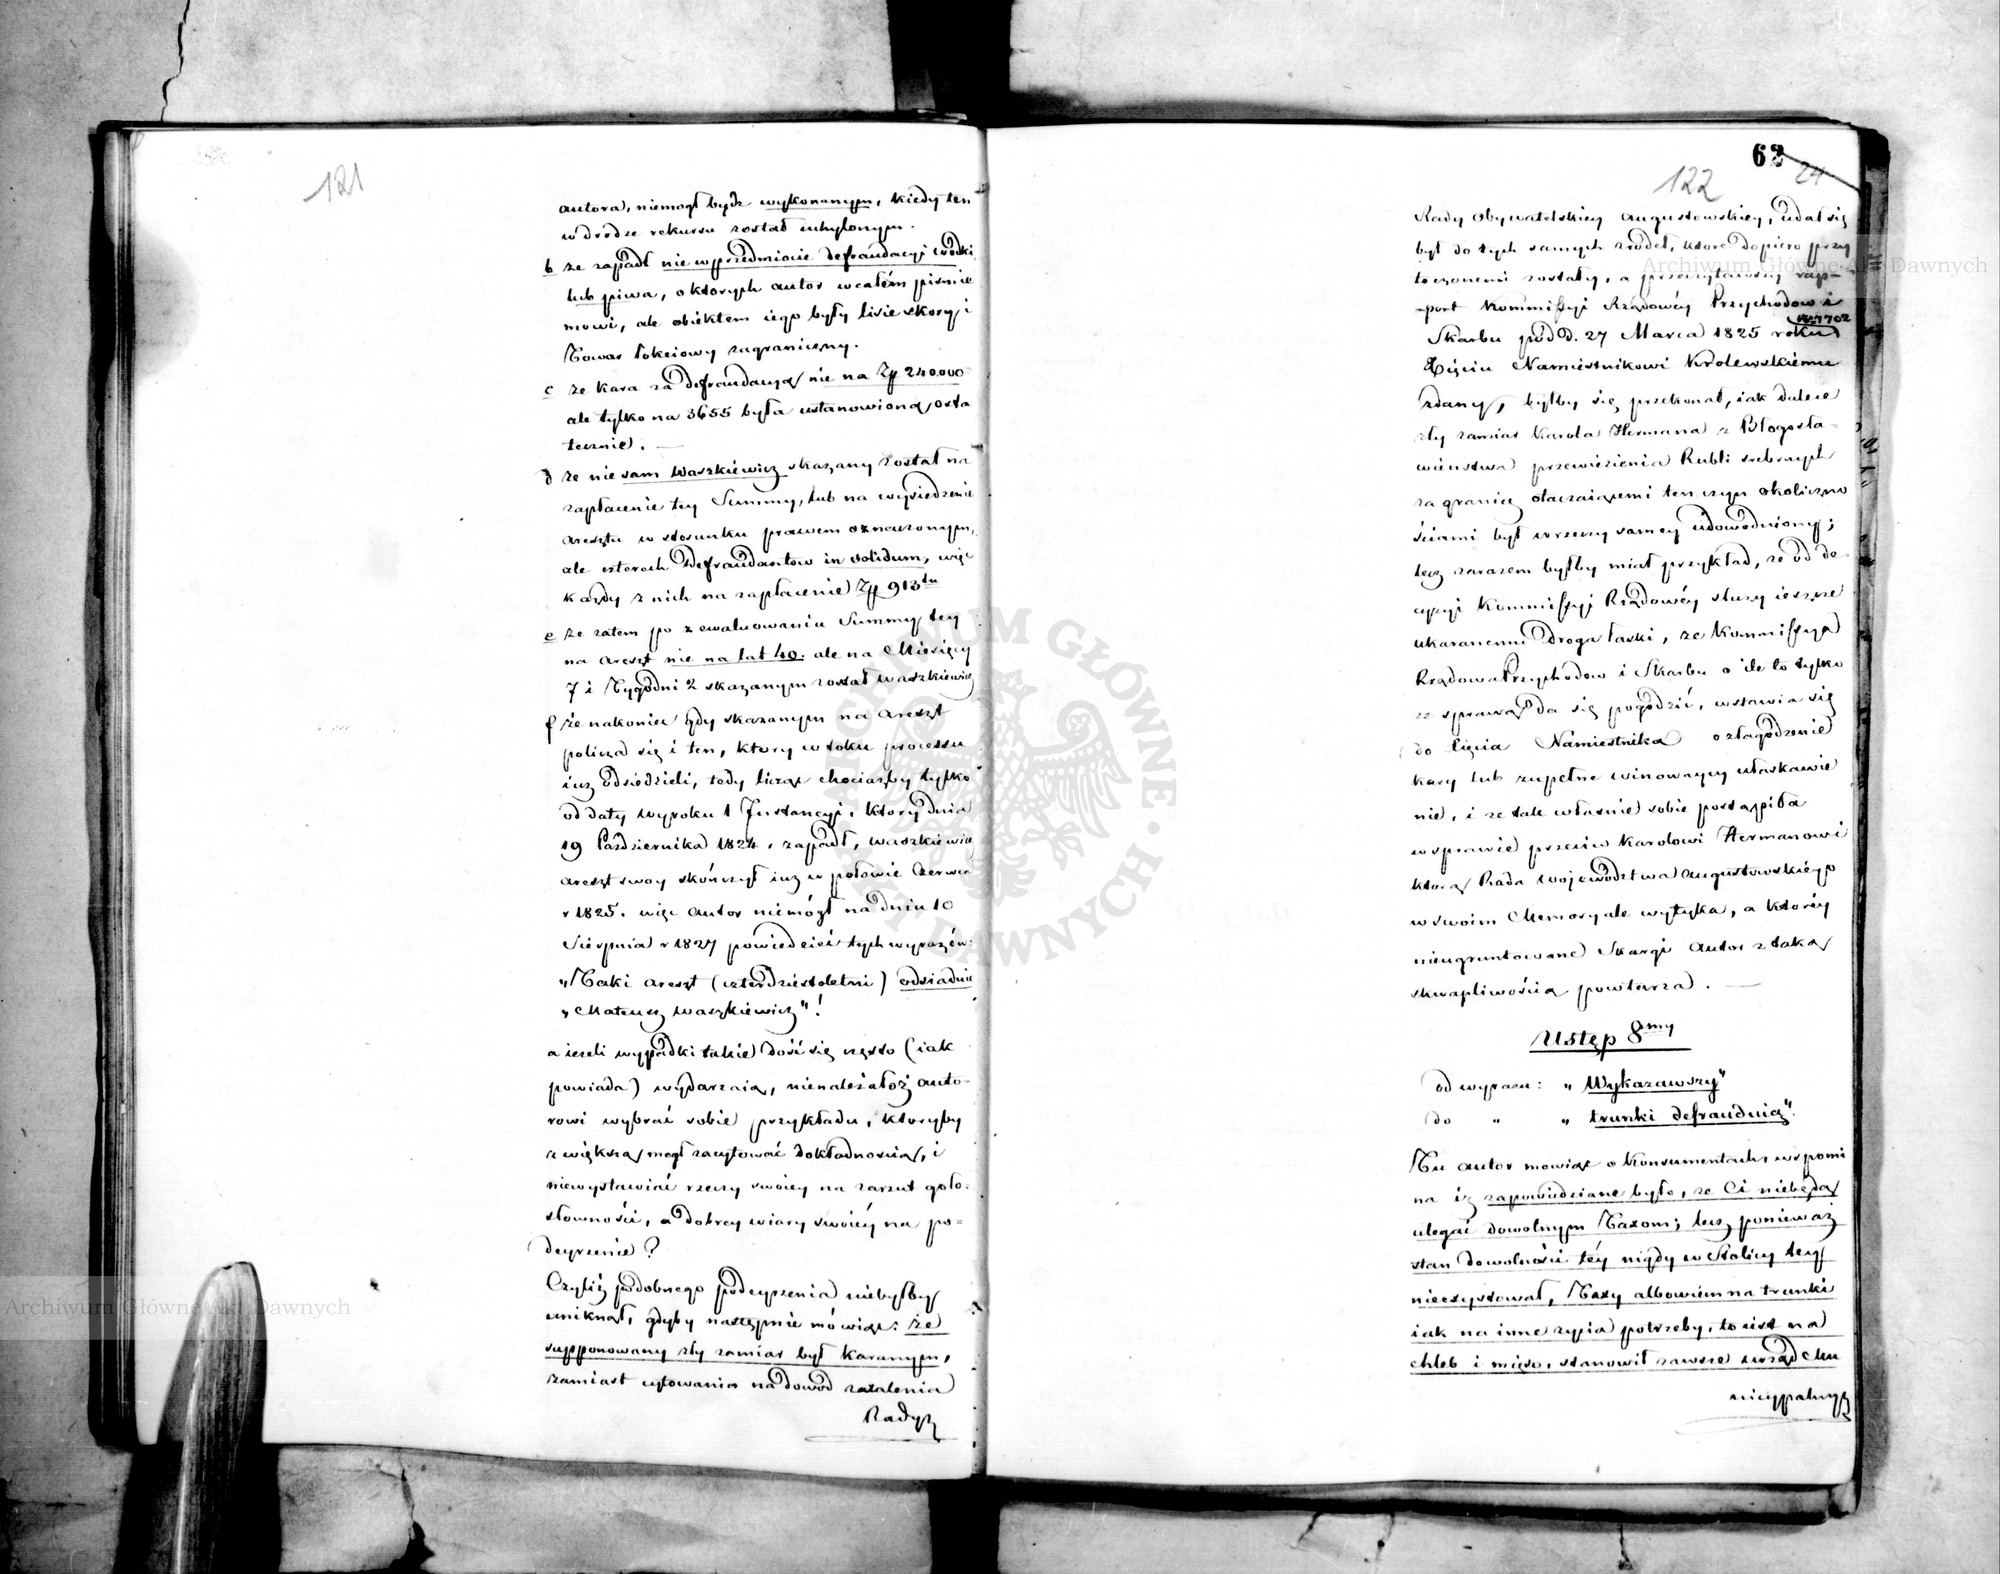 121
autora, niemogł bydź wykonanym, kiedy ten
w drodze rekursu został uchylonym.
b że zapadł nie w przedmiocie defraudacyi wódki
lub piwa, o ktorych autor w całém pismie
mowi, ale obiektem iego były lisie skory i
Towar łokciowy zagraniczny.
c że kara za defraudacyą nie na Zł 240000
ale tylko na 3655 była ustanowioną osta
tecznie. —
d że nie sam Waszkiewicz skazany został na
zapłacenie tey Summy, lub na wysiedzenie
aresztu w stosunku prawem oznaczonym,
ale czterech Defraudantow in solidum, więc
każdy z nich na zapłacenie Zł 913
e że zatem po zewaluowaniu Summy tey
na areszt nie na lat 40. ale na Miesięcy
7 i Tygodni 2 skazanym został Waszkiewicz
f że nakoniec gdy skazanym na areszt
policza się i ten, ktory w toku processu
iuż odsiedzieli, tedy licząc chociażby tylko
od daty wyroku 1 Instancyi, ktory dnia
19 Października 1824. zapadł, Waszkiewicz
areszt swoy skończył iuż w połowie Czerwca
r 1825. więc autor niemógł na dniu 10
Sierpnia r 1827 powiedzieć tych wyrazów:
„Taki areszt (czterdziestoletni) odsiaduie
„Mateusz Waszkiewicz"!
a ieżeli wypadki takie dość się często (iak
powiada) wydarzaią, nienależałoż auto-
rowi wybrać sobie przykładu, ktoryby
z większą mogł zacytować dokładnością, i
niewystawiać rzeczy swoiey na zarzut goło-
słowności, a dobrey wiary swoiéy na po-
deyrzenie?
Czyliż podobnego podeyrzenia niebyłby
uniknął, gdyby następnie mówiąc: że
supponowany zły zamiar był karanym,
zamiast cytowania na dowód zażalenia
Rady
62
122
24
Rady Obywatelskiey Augustowskiey, udał się
był do tych samych zrodeł, ktore dopiero przy
toczonemi zostały, a przeczytawszy rap-
-port Kommissyi Rządowéy Przychodow i
Nr 7702
Skarbu pod d. 27 Marca 1825 roku
Xięciu Namiestnikowi Krolewskiemu
zdany, byłby się przekonał, iak dalece
zły zamiar Karola Hermana z Błogosła-
wieństwa przewiezienia Rubli srebrnych
za granicę otaczaiącemi ten czyn okoliczno
ściami był w rzeczy samey udowodniony;
lecz zarazem byłby miał przykład, że od de-
cyzyi Kommissyi Rządowéy służy ieszcze
ukaranemu droga łaski, że Kommissya
Rządowa Przychodow i Skarbu o ile to tylko
ze sprawą da się pogodzić, wstawia się
do Xięcia Namiestnika o złagodzenie
kary lub zupełne winowaycy ułaskawie
nie, i że tak właśnie sobie postąpiła
w sprawie przeciw Karolowi Hermanowi
ktorą Rada Województwa Augustowskiégo
w swoim Memoryale wytyka, a ktoréy
nieugruntowane Skargi autor z taką
skwapliwością powtarza. —
Ustęp 8my
od wyrazu: „Wykazawszy"
do „ „trunki defraudnią".
Tu autor mowiąc o Konsumentach, wspomi
na iż zapowiedziane było, że Ci niebędą
ulegać dowolnym Taxom; lecz ponieważ
stan dowolności téy nigdy w Stolicy tey
nieexystował, Taxy albowiem na trunki
iak na inne życia potrzeby, to iest na
chleb i mięso, stanowił zawsze urząd Mu
nicypalny